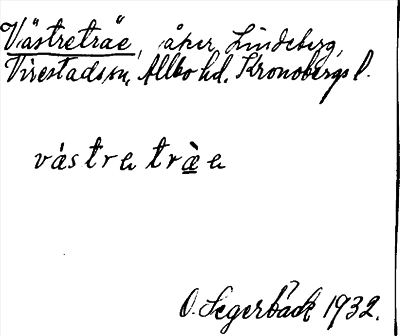 Västreträe, åker, Lindeberg,
Virestads sn, Allbo hd. Kronobergs l.
västre träe
O. Segerbäck 1932.